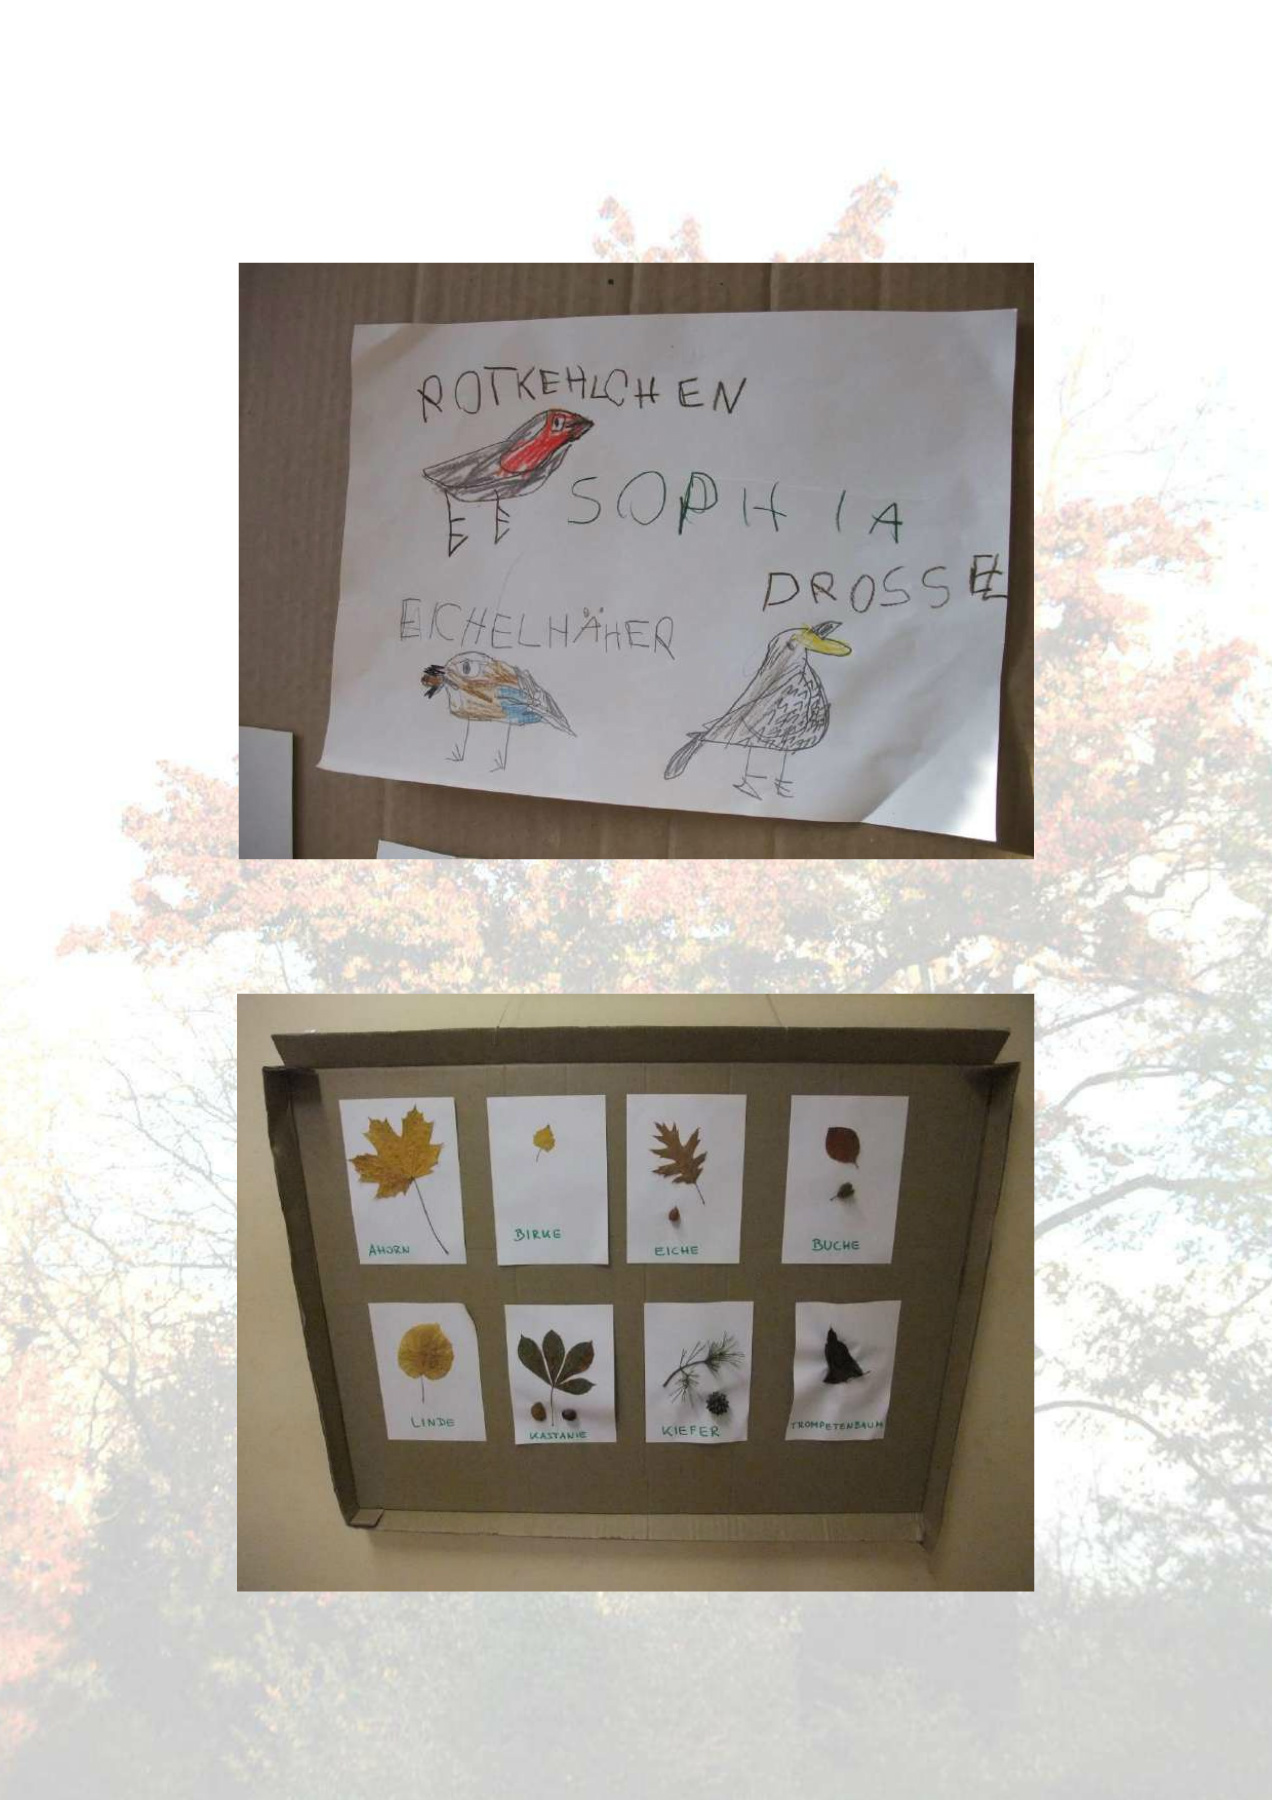 ROTKEHLCHEN
SOPHIA
DROSSEL
EICHELHÄHER
AHORN
BIRKE
EICHE
BUCHE
LINDE
KASTANIE
KIEFER
TROMPETENBAUM